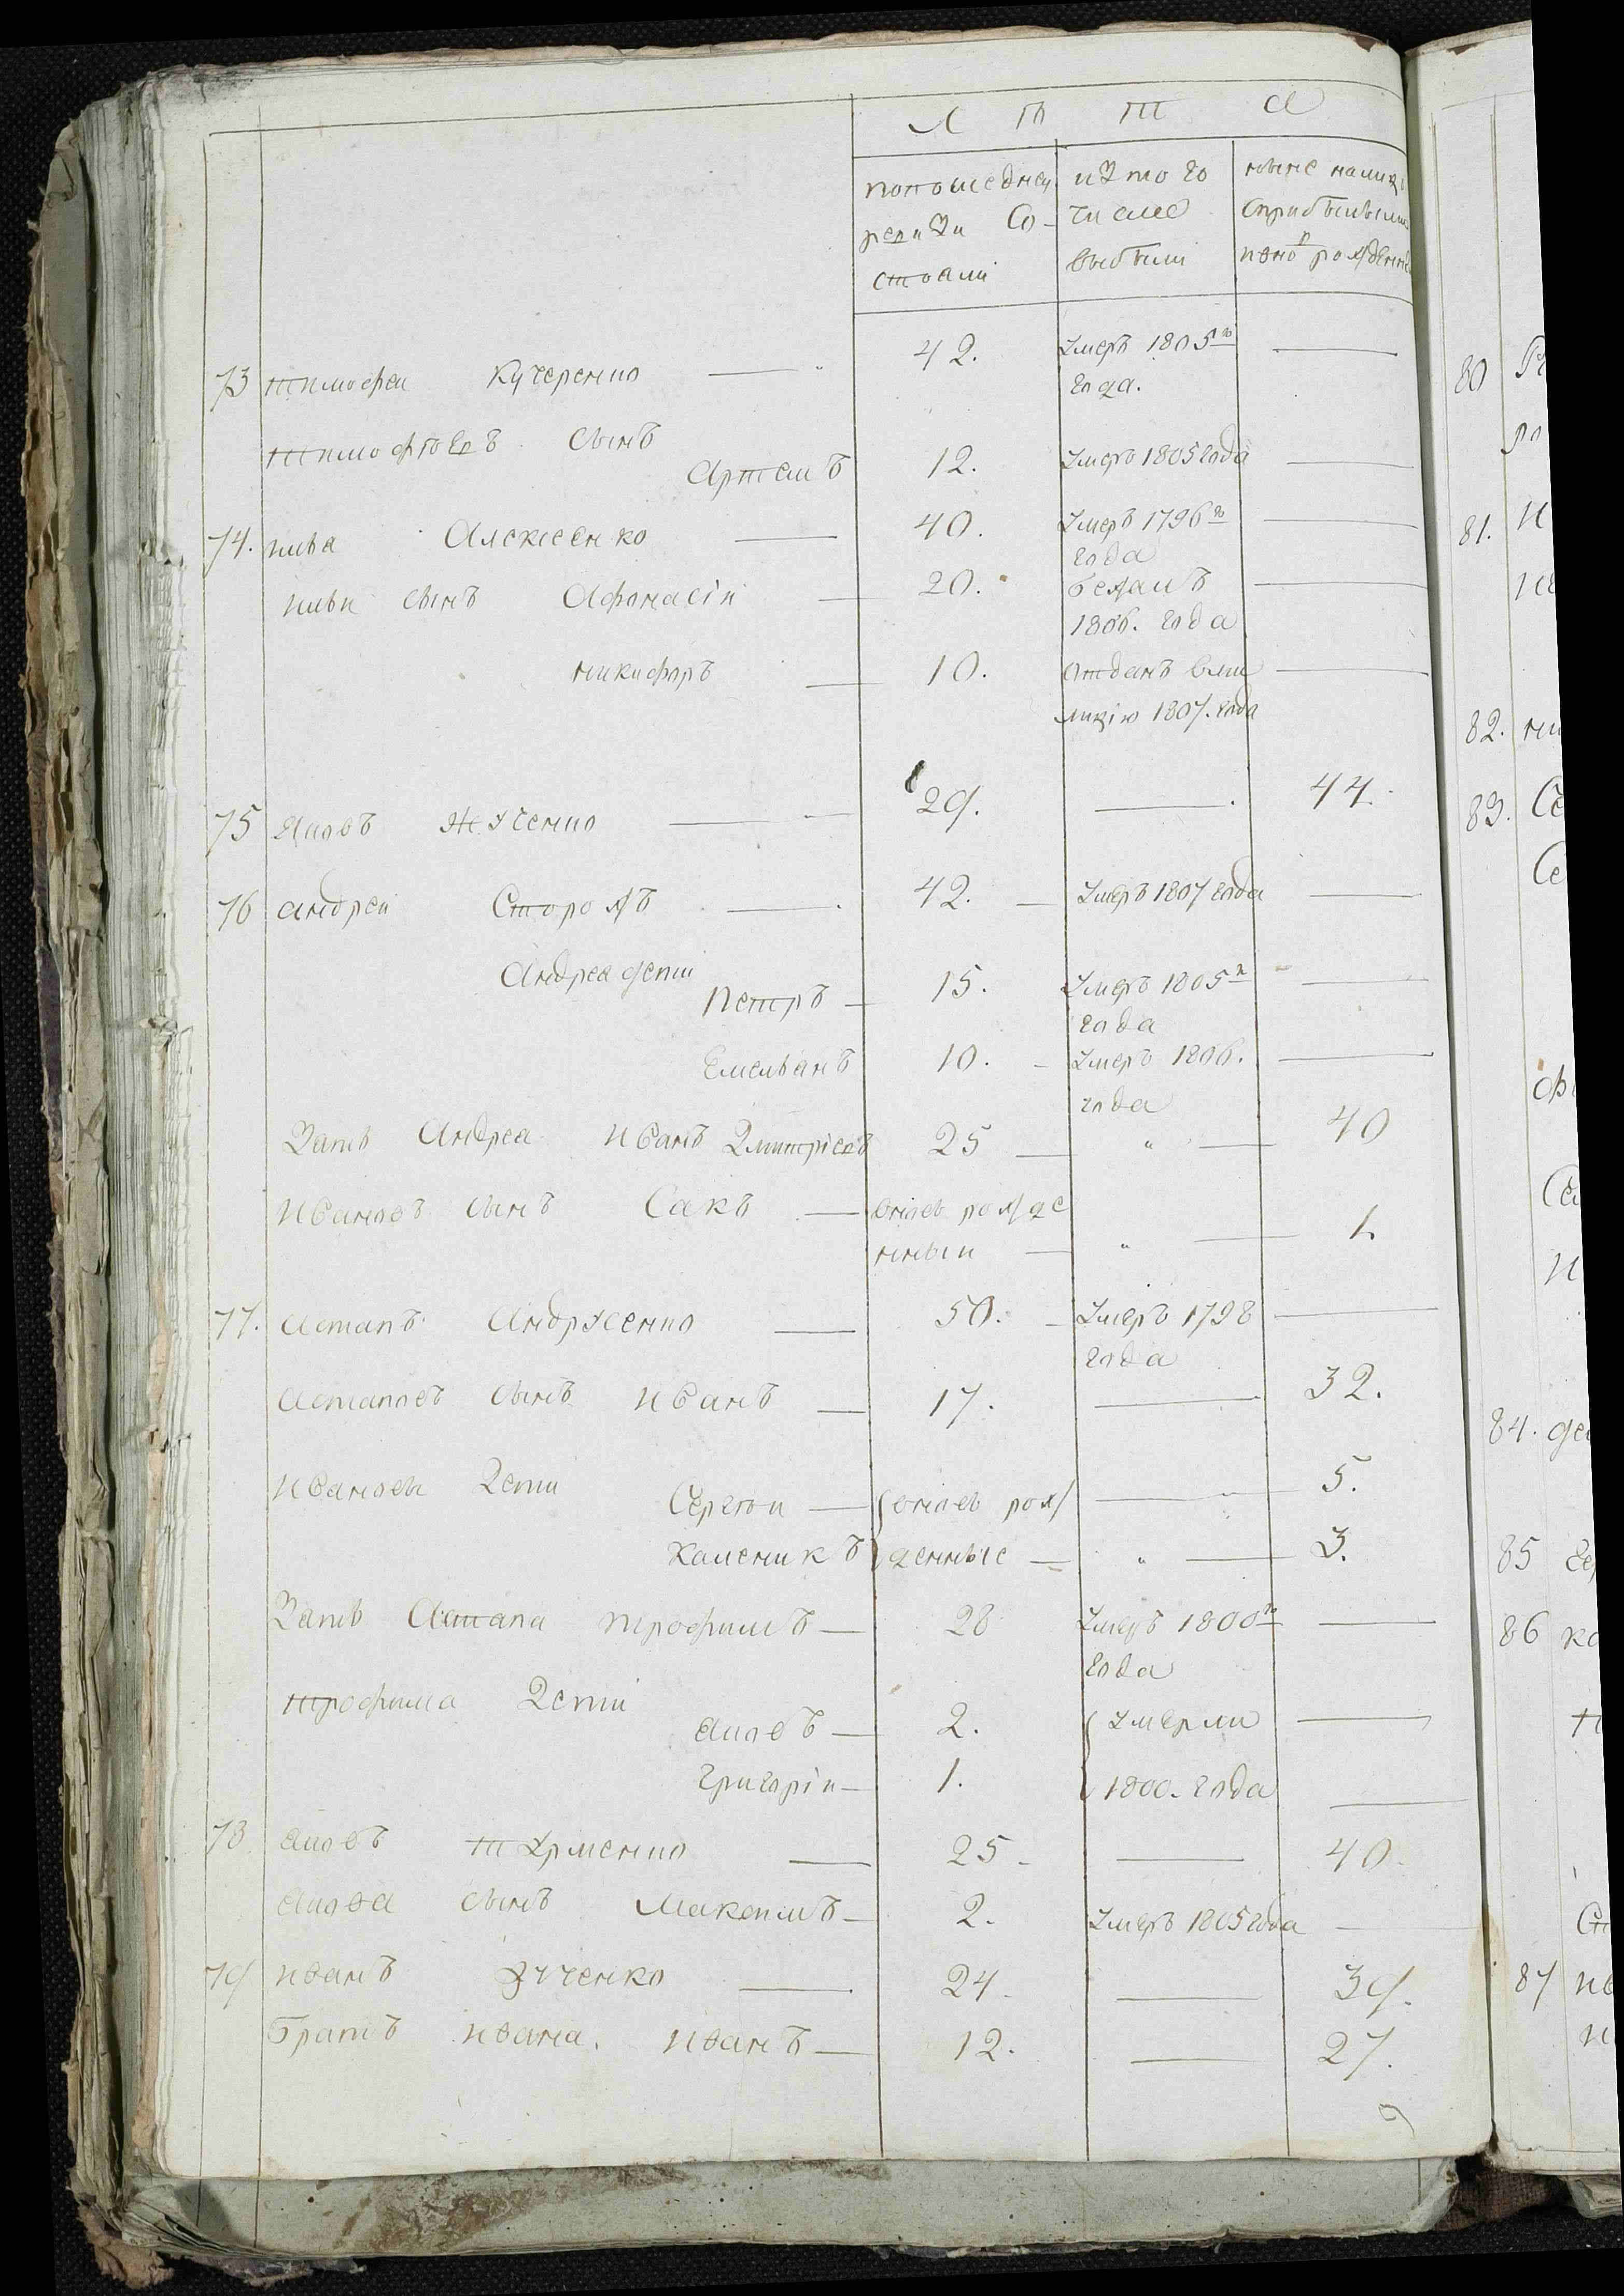 Л ѣ т а
попоследней изъ того ныне налицо
ревизи Со- числа
стояли выбыли
73 Тимофеи Кучеренко — 42. Умеръ 1805го —
года.
Тимофѣевъ сынъ
Артемъ 12. Умеръ 1805 года —
74. илья Алексеенко — 40. Умеръ 1796го —
года
ильи сынъ Афонасіи — 20. бежалъ —
1806. года
никифоръ — 10. отданъ вми —
лицію 1807. года
75 яковъ Жученко — 29. — 44.
76 андреи Сторожъ — 42. — Умеръ 1807 года —
Андрея дети
Петръ — 15. Умеръ 1805го —
года
Емельянъ 10. — Умеръ 1806. —
года
Зять Андрея Иванъ Дмитріевъ 25 — " — 40
Ивановъ сынъ Сакъ — вновь рожде
нныи — " — 1.
77. астапъ Андрусенко — 50. — Умеръ 1798 —
года
астаповъ сынъ иванъ — 17. — 32.
ивановы дети
Сергѣи — вновь рож — 5.
Каленикъ денные — " — 3.
Зять Астапа трофимъ — 28 Умеръ 1800го —
года
трофима дети
яковъ — 2. Умерли —
григоріи — 1. 1800. года —
78 яковъ Турменко — 25 — — 40.
якова сынъ Максимъ — 2. Умеръ 1805 года —
79 иванъ Зученко — 24. — 39.
братъ ивана. иванъ — 12. — 27.
80
81. И
82. ни
83. Се
Се
84. де
85
86 ко
87 ив